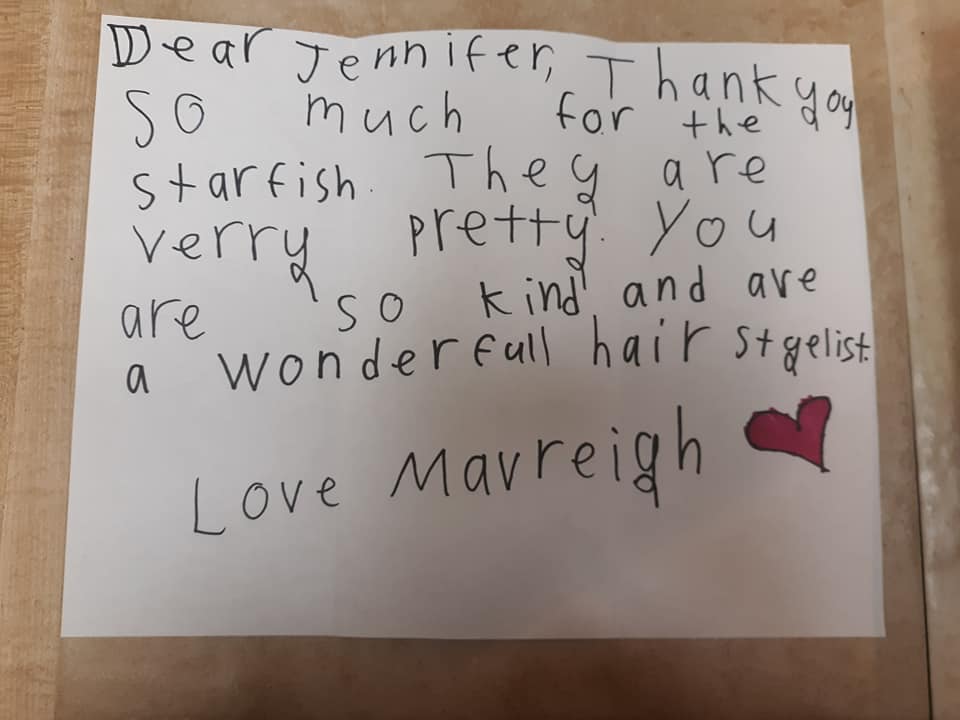 Dear Jennifer, Thank you
so much for the
starfish. They are
verry pretty. You
are so kind and are
a wonderfull hair stgelist.
Love Maureigh